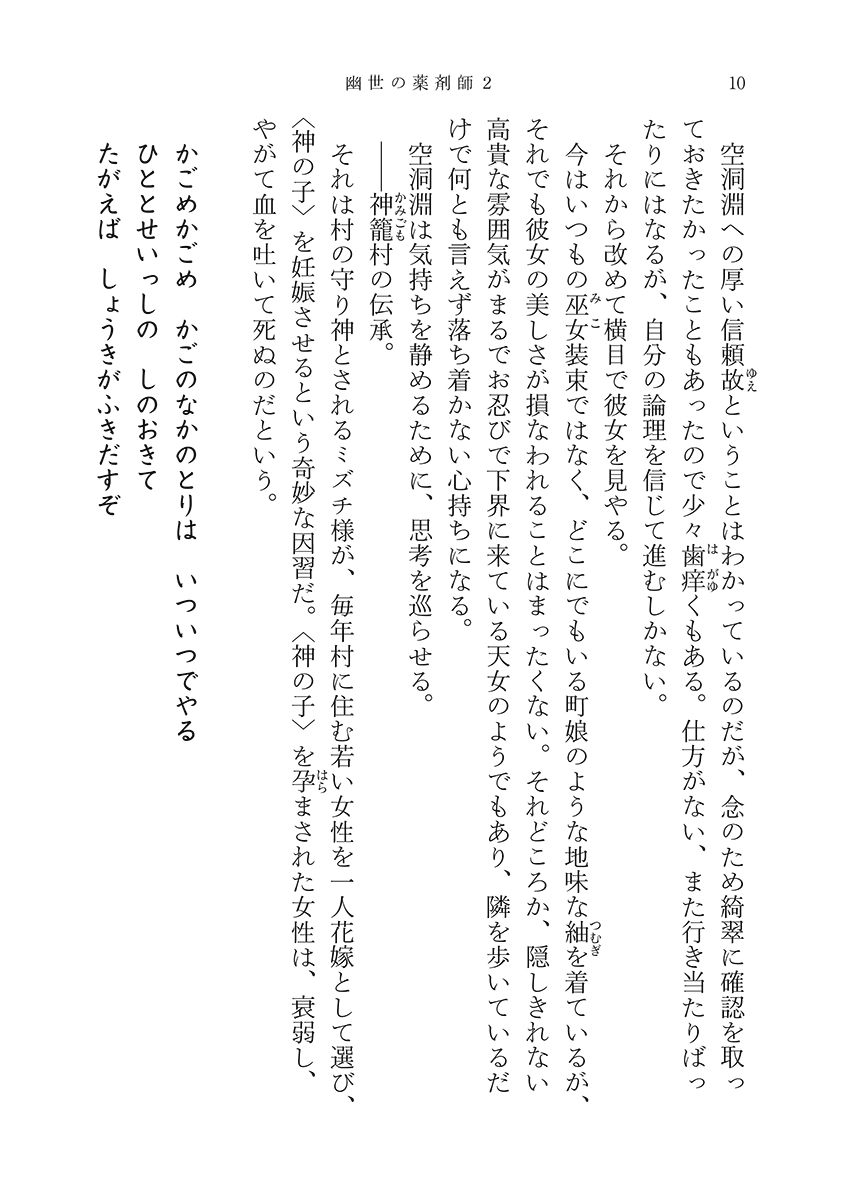 幽世の薬剤師 2
10
空洞淵への厚い信頼故ということはわかっているのだが、念のため綺翠に確認を取っ
ておきたかったこともあったので少々歯痒くもある。仕方がない、また行き当たりばっ
たりにはなるが、自分の論理を信じて進むしかない。
それから改めて横目で彼女を見やる。
今はいつもの巫女装束ではなく、どこにでもいる町娘のような地味な紬を着ているが、
それでも彼女の美しさが損なわれることはまったくない。それどころか、隠しきれない
高貴な雰囲気がまるでお忍びで下界に来ている天女のようでもあり、隣を歩いているだ
けで何とも言えず落ち着かない心持ちになる。
空洞淵は気持ちを静めるために、思考を巡らせる。
――神籠村の伝承。
それは村の守り神とされるミズチ様が、毎年村に住む若い女性を一人花嫁として選び、
〈神の子〉を妊娠させるという奇妙な因習だ。〈神の子〉を孕まされた女性は、衰弱し、
やがて血を吐いて死ぬのだという。
かごめかごめ　かごのなかのとりは　いついつでやる
ひととせいっしの　しのおきて
たがえば　しょうきがふきだすぞ
ゆえ
は がゆ
みこ
つむぎ
かみごも
はら